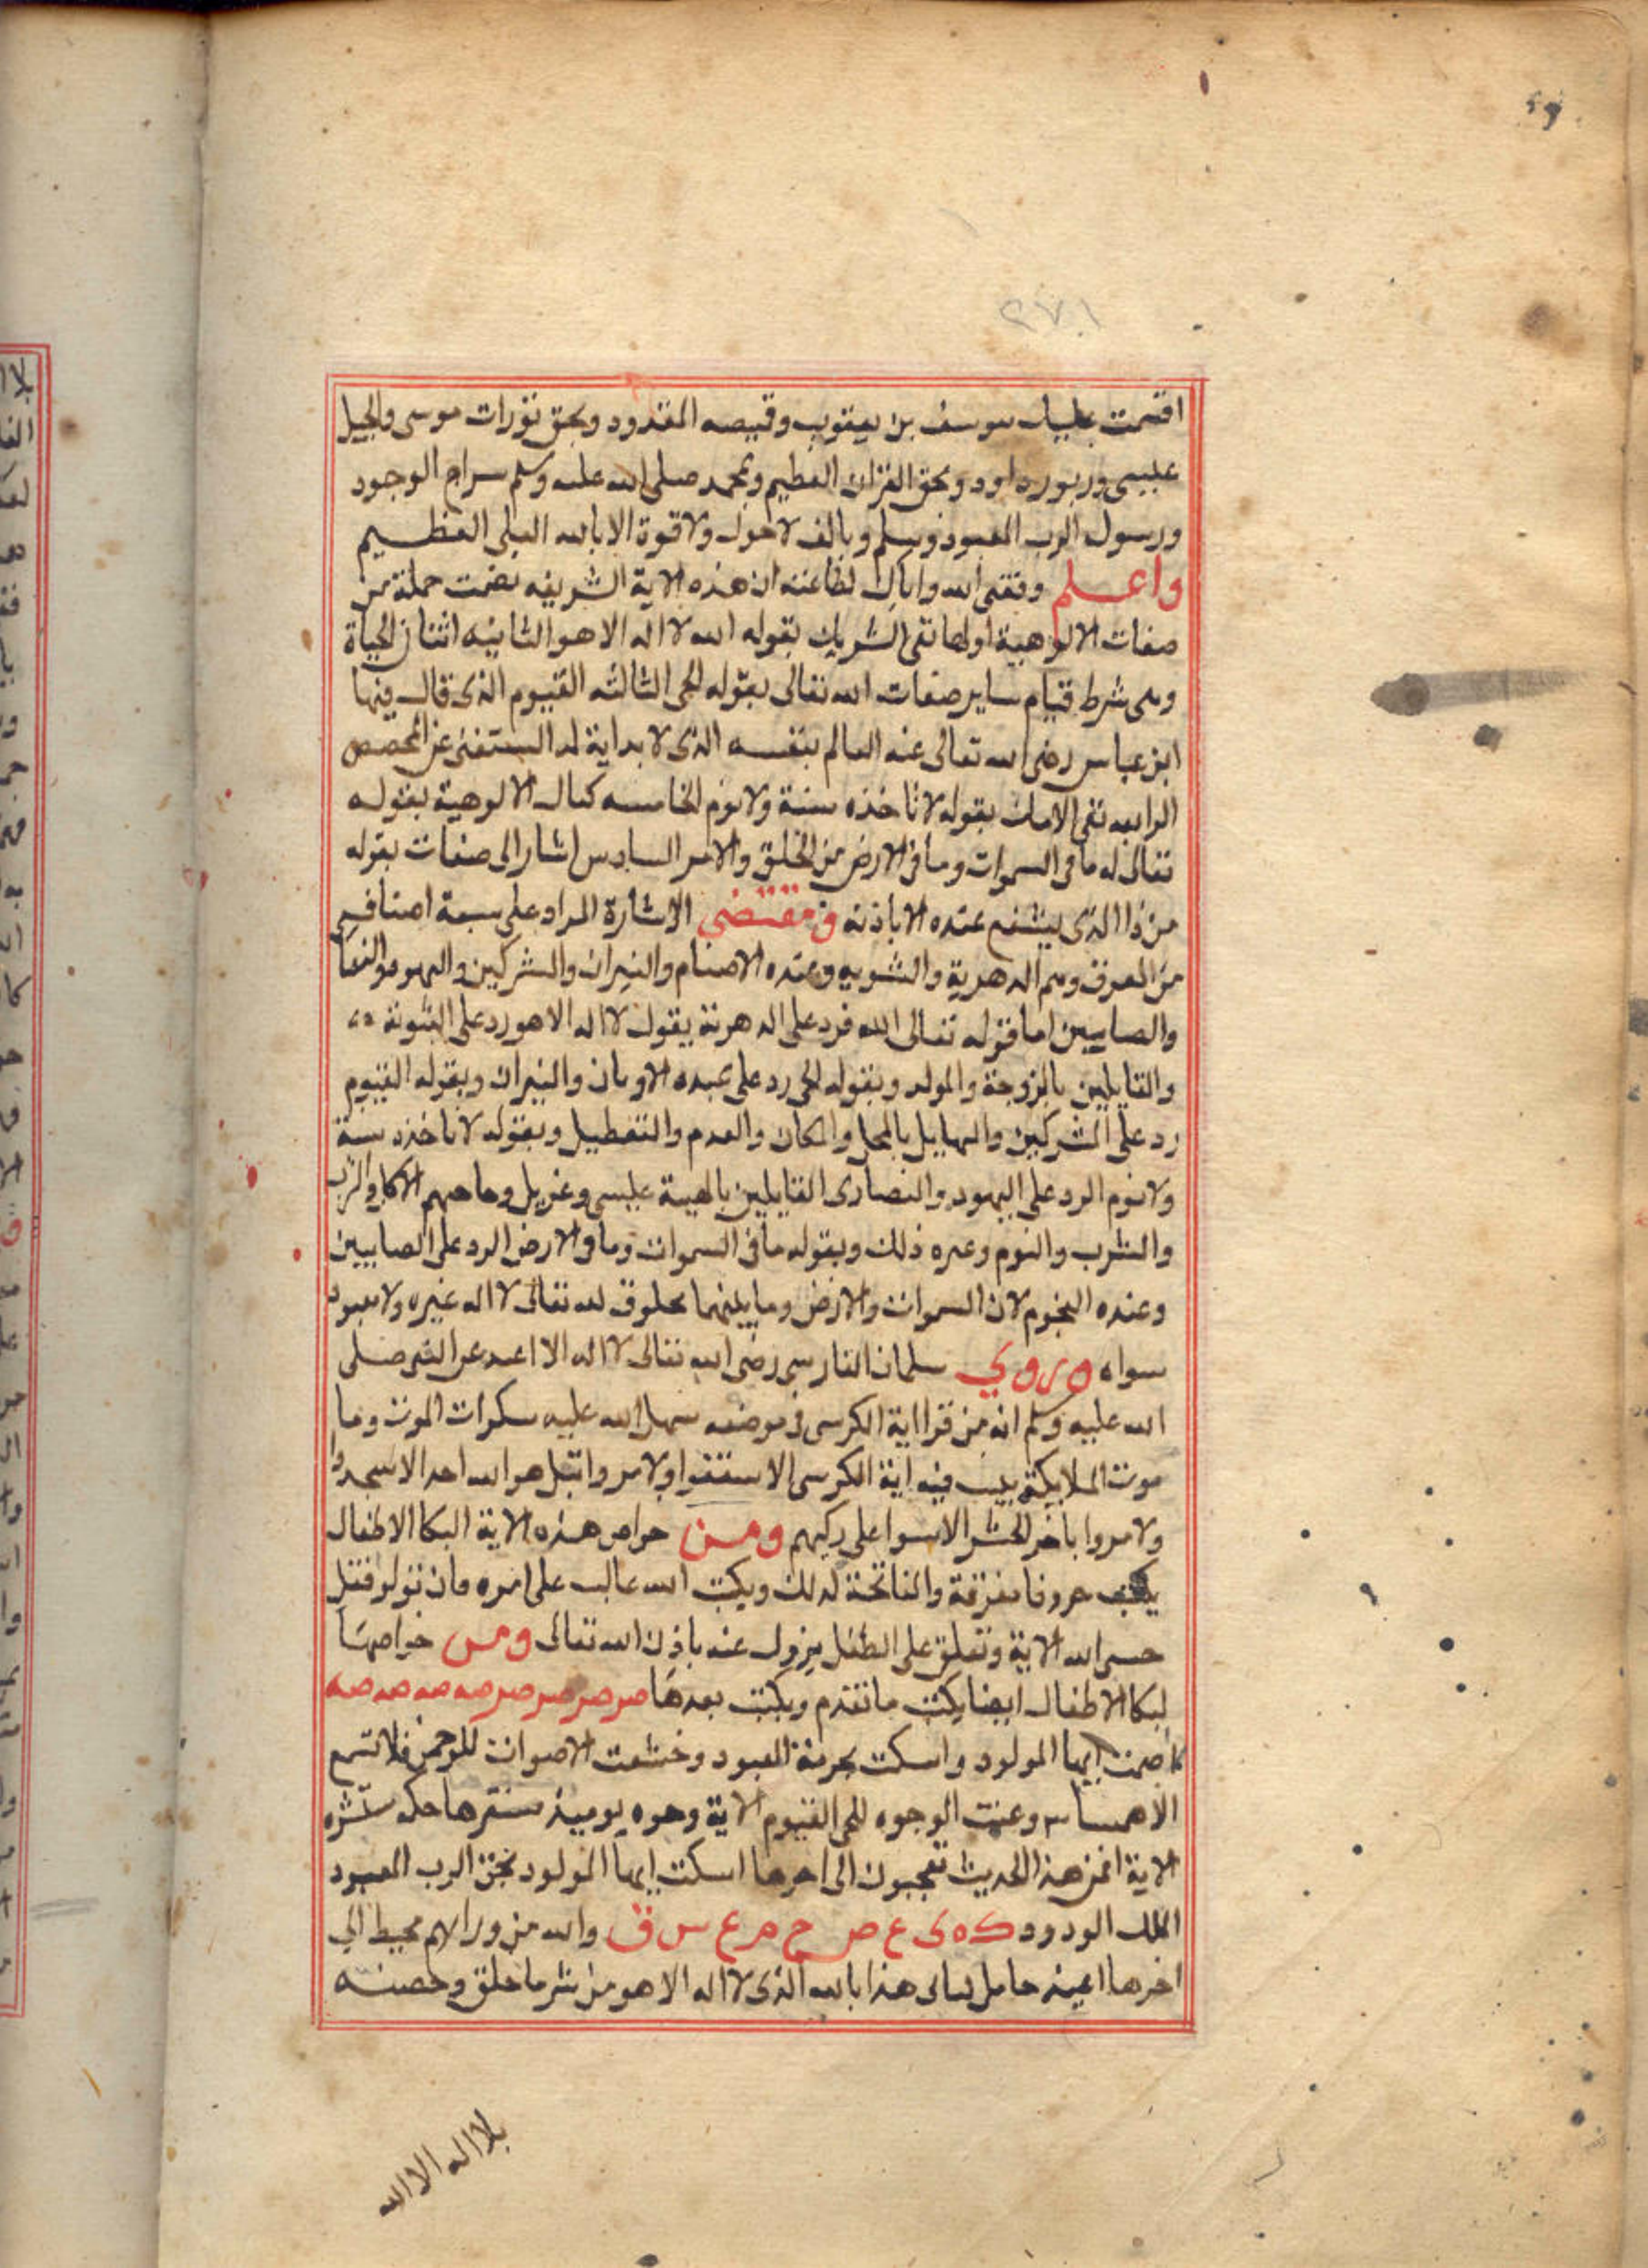 ٢٧١
اقسمت عليك بيوسف بن يعقوب وقميصه المقدود وبحق تورات موسى وانجيل
عيسى وزبور داود وبحق القران العظيم وبمحمد صلى الله عليه وسلم سراج الوجود
ورسول الرب المعبود وسلم وبالف لا حول ولا قوة الا بالله العلى العظيم
واعلم وفقنى الله واياك لطاعته ان هذه الاية الشريفه تضمت جملة من
صفات الالوهية اولها نفى الشريك بقوله الله لا اله الا هو الثانيه اثنان الحياة
وهى شرط قيام ساير صفات الله تعالى بقوله الحى الثالثه القيوم الذى قال فيها
ابن عباس رضى الله تعالى عنه العالم بنفسه الذى لا بداية له المستغنى عن المخصص
الرابعه نفى بقوله لا تاخذه سنة ولا نوم الخامسه كمال الالوهية بقوله
تعالى له ما فى السموات وما فى الارض من الخلق والامر السادس اشار الى صفات بقوله
من ذا الذى يشفع عنده الا باذنه ومقتضى الاشارة المراد على سبعة اصناف
من الفرق وهم الدهرية والثنويه وعبده الاصنام والنيران والمشركين واليهود والنصا
والصابيين اما قوله تعالى الله فرد على الدهرية بقول لا اله الا هو رد على الثنوية
والقايلين بالزوجة والولد وبقوله الحى رد على عبده الاوثان والنيران وبقوله القيوم
رد على المشركين بالمحل والمكان والعدم والتعطيل وبقوله لا تاخذه سنة
ولا نوم الرد على اليهود والنصارى القايلين بالهية عيسى وعزير
والشرب والنوم وغيره ذلك وبقوله ما فى السموات وما فى الارض الرد على الصابيين
وعبده النجوم لان السموات والارض وما بينهما مخلوق لله تعالى لا اله غيره ولا معبود
سواه وروي سلمان الفارسى رضى الله تعالى لا اله الا صلى
الله عليه وسلم انه من قرا اية الكرسى فى موضعه سهل الله عليه سكرات الموت وما
الملايكة ببيت فيه اية الكرسى الا ولا مروا بقل هو الله احد الا سجدوا
ولا مروا باخر الحشر الا على ركبهم ومن خواص هذه الاية البكا الاطفال
يكتب حروفا مفرقة والفاتحة كذلك ويكتب الله غالب على امره فان تولو فقل
حسبى الله الاية وتعلق على الطفل يزول عنه باذن الله تعالى ومن خواصها
لبكا الاطفال ايضا يكتب ما تقدم ويكتب بعدها صر صر صر صر صر صه صه صه صه
اصمت ايها المولود واسكت بحرمة المعبود وخشعت الاصوات للرحمن فلا تسمع
الا همسا وعنت الوجوه للحى القيوم الاية وجوه يوميذ مسفره ضاحكه مستبشره
الاية افمن هذا الحديث تعجبون الى اخرها اسكت ايها المولود بحق الرب المعبود
الملك الودود ك ه ى ع ص ح م ع س ق والله من ورايهم محيط الي
اخرها اعيذ حامل كتابى هذا بالله الذى لا اله الا هو من شر ما خلق وحصنته
بلا اله الا الله